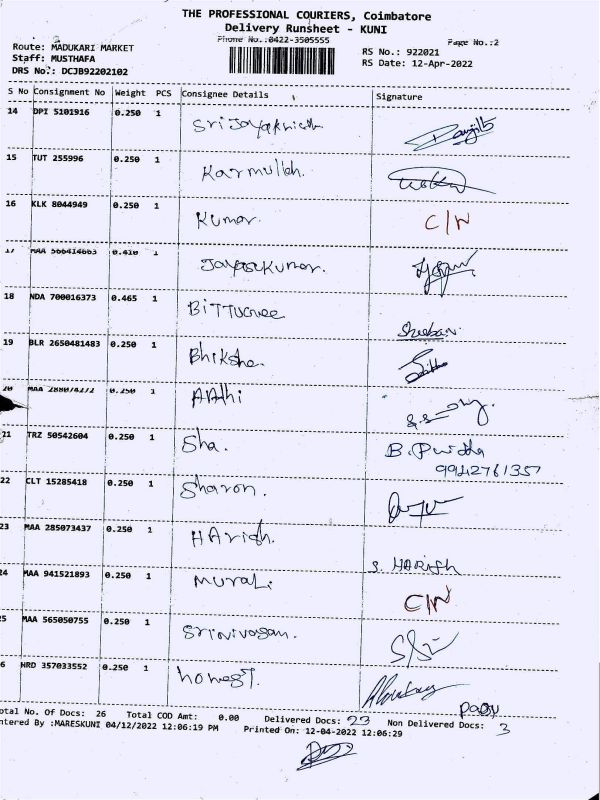 THE PROFESSIONAL COURIERS, Coimbatore
Delivery Runsheet - KUNI
Phone No.:0422-3505555
Page No.:2
Route: MADUKARI MARKET
Staff: MUSTHAFA
DRS No.: DCJB92202102
RS No.: 922021
RS Date: 12-Apr-2022
S No Consignment No Weight PCS Consignee Details Signature
14 DPI 5101916 0.250 1
15 TUT 255996 0.250 1 Karmullah.
16 KLK 8044949 0.250 1 Kumar. C/N
17 MAA 566414663 0.410 1 Jayasekumar.
18 NDA 700016373 0.465 1
19 BLR 2650481483 0.250 1 Bhiksha.
20 MAA 288074272 0.250 1 AAthi
21 TRZ 50542604 0.250 1 Sha. B.
9942761357
22 CLT 15285418 0.250 1 Sharon.
23 MAA 285073437 0.250 1 HArish. S. HARISH
24 MAA 941521893 0.250 1 Murali. C/N
25 MAA 565050755 0.250 1 Srinivasan.
6 HRD 357033552 0.250 1 honest.
otal No. Of Docs: 26 Total COD Amt: 0.00 Delivered Docs: 23 Non Delivered Docs: 3
ntered By :MARESKUNI 04/12/2022 12:06:19 PM Printed On: 12-04-2022 12:06:29